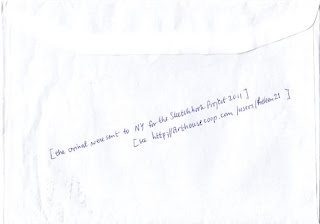 [the original were sent to NY for the Sketchbook Project 2011]
[see http://Arthousecoop.com/users/